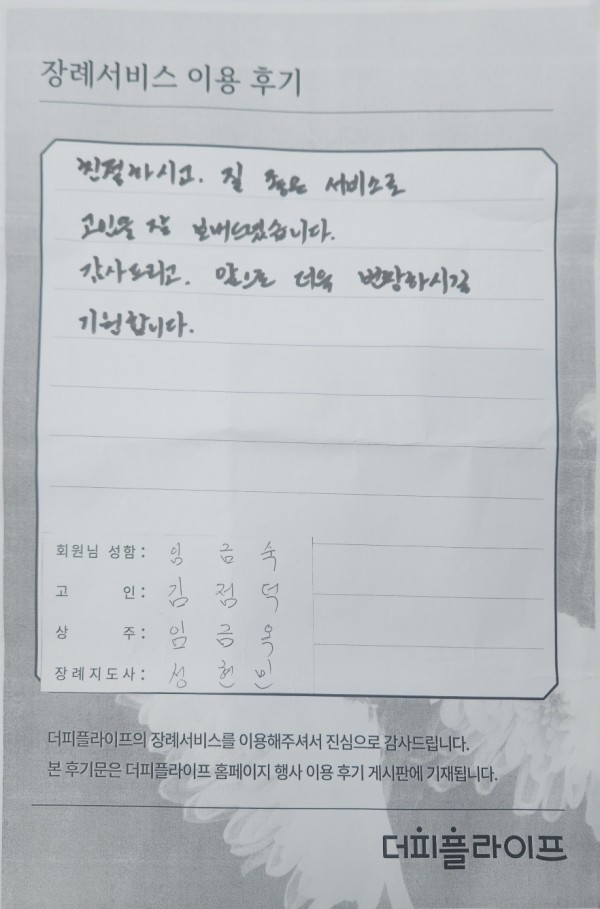 장례서비스 이용 후기
친절하시고. 질 좋은 서비스로
고인을 잘 보내드렸습니다.
감사드리고. 앞으로 더욱 번창하시길
기원합니다.
회원님 성함: 임 금 숙
고 인: 김 점 덕
상 주: 임 금 옥
장례지도사: 성 현 민
더피플라이프의 장례서비스를 이용해주셔서 진심으로 감사드립니다.
본 후기문은 더피플라이프 홈페이지 행사 이용 후기 게시판에 기재됩니다.
더피플라이프